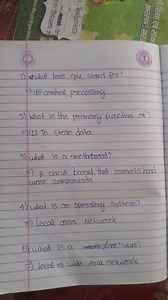 1) what does cpu stand for?
→ (B) central processing
2) what is the primary function of
→ (D) To store data
3) what is a motherboard?
→ A circuit board that connects hard
ware components
4) what is an operating system?
→ Local area Network
5) what is a
→ wide Area network